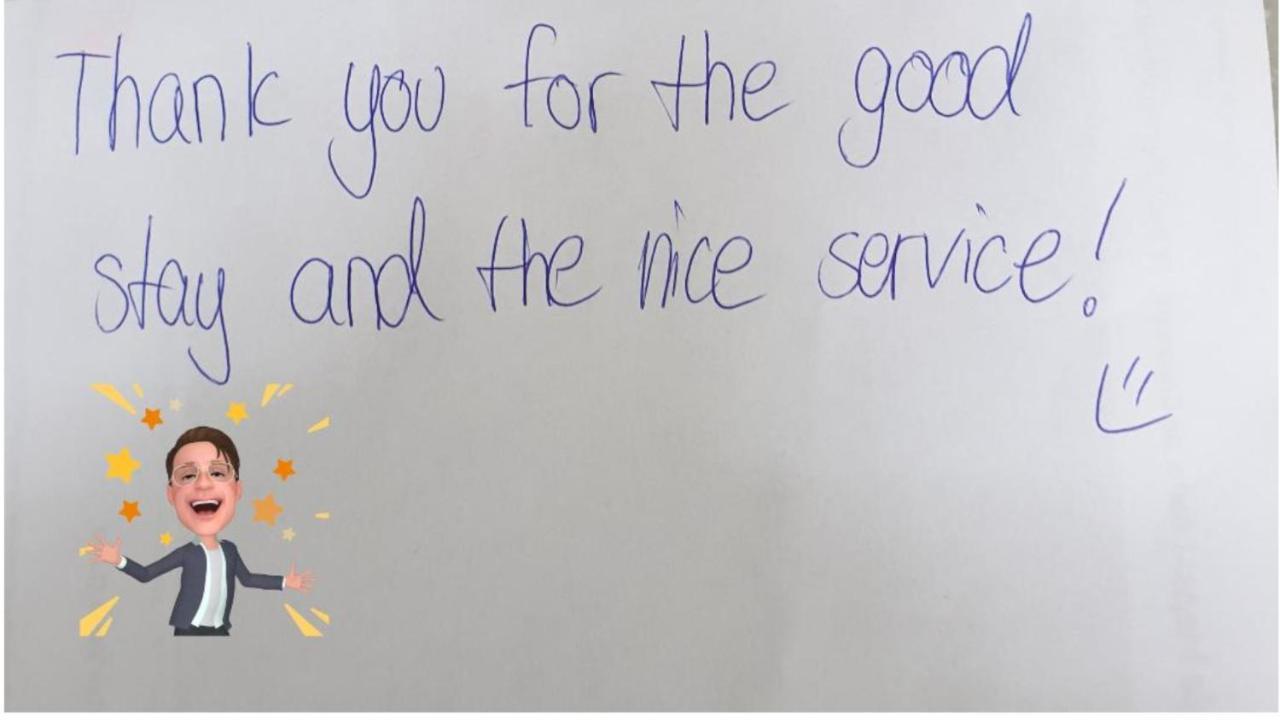 Thank you for the good
stay and the nice service!